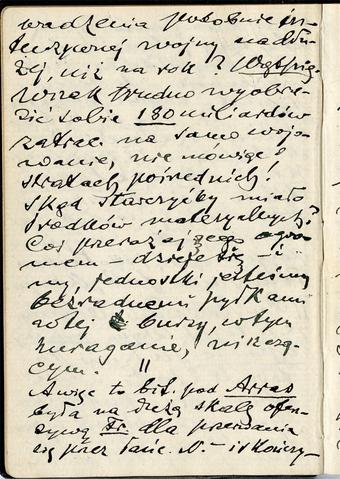 wadzenia podobnie in-
tensywnej wojny nadłu-
żej, niż na rok? Wątpię.
Wszak trudno wyobra-
zić sobie 180 miliardów
zatrac. na samo wojo-
wanie, nie mówiąc!
stratach pośrednich!
Skąd starczyłby miało
środków materyalnych?
Coś przerażającego ogro-
mem – dzieje się – i
my, jednostki, jesteśmy
bezradnemi pyłkami
w tej burzy, w tym
huraganie,
cym. "
A więc to bit. pod Arras
była na dużą skalę ofen-
zywą Fr. dla przerwania
się przez łańc. N. – i skończy-